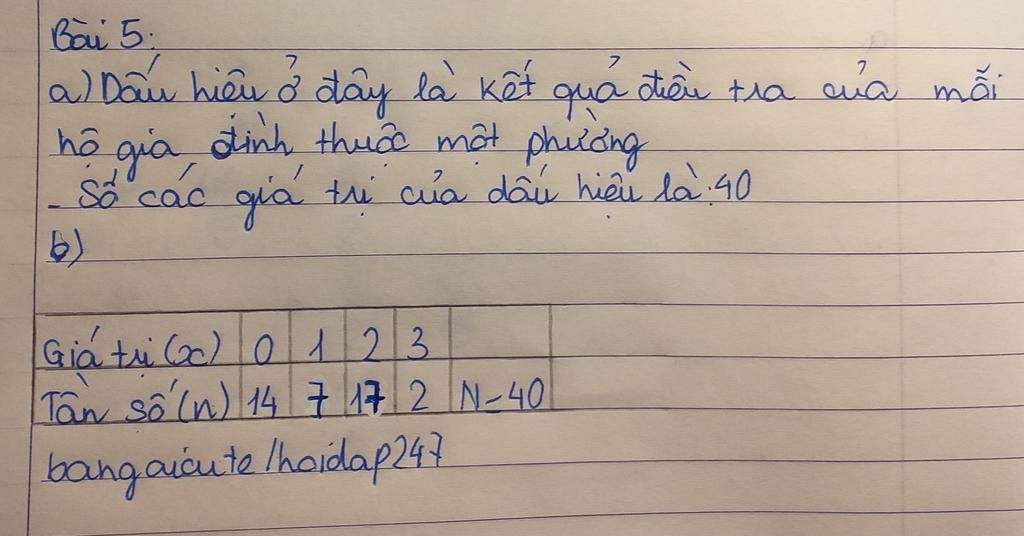 Bài 5:
a) Dấu hiệu ở đây là kết quả điều tra của mỗi
hộ gia đình thuộc một phường
- Số các giá trị của dấu hiệu là: 40
b)
Giá trị (x) 0 1 2 3
Tần số (n) 14 7 17 2 N=40
bangaicute/hoidap247